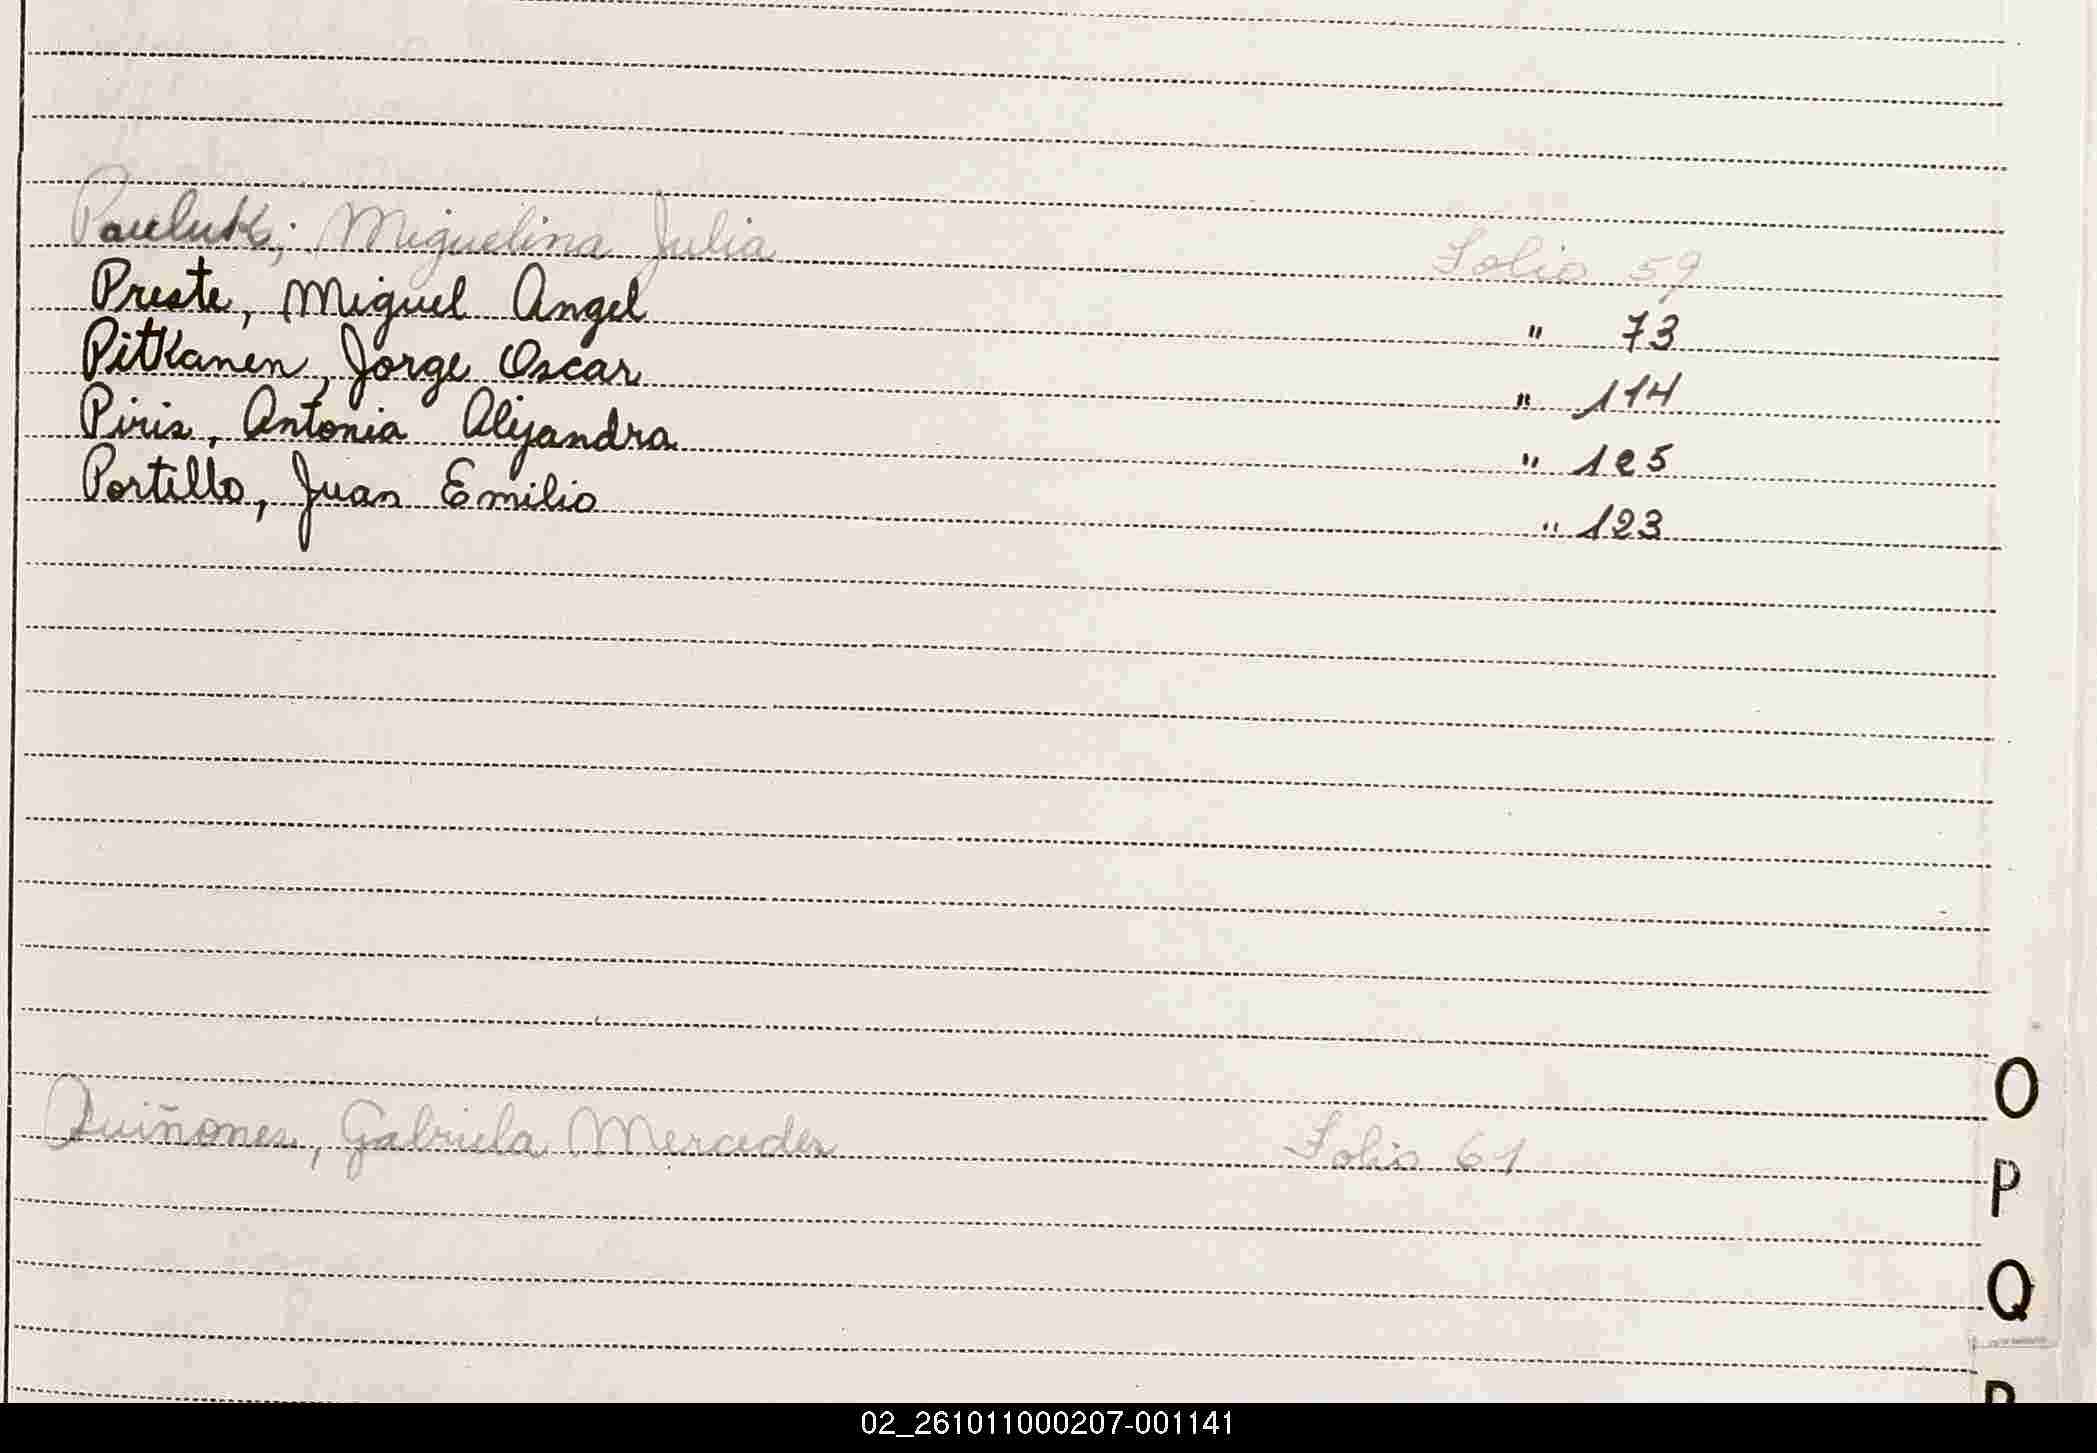 Pauluk; Miguelina Julia Folio 59
Preste, Miguel Angel " 73
Pitkanen, Jorge Oscar " 114
Piris, Antonia Alejandra " 125
Portillo, Juan Emilio " 123
O
Quiñones, Gabriela Mercedes Folio 61
P
Q
R
02_261011000207-001141